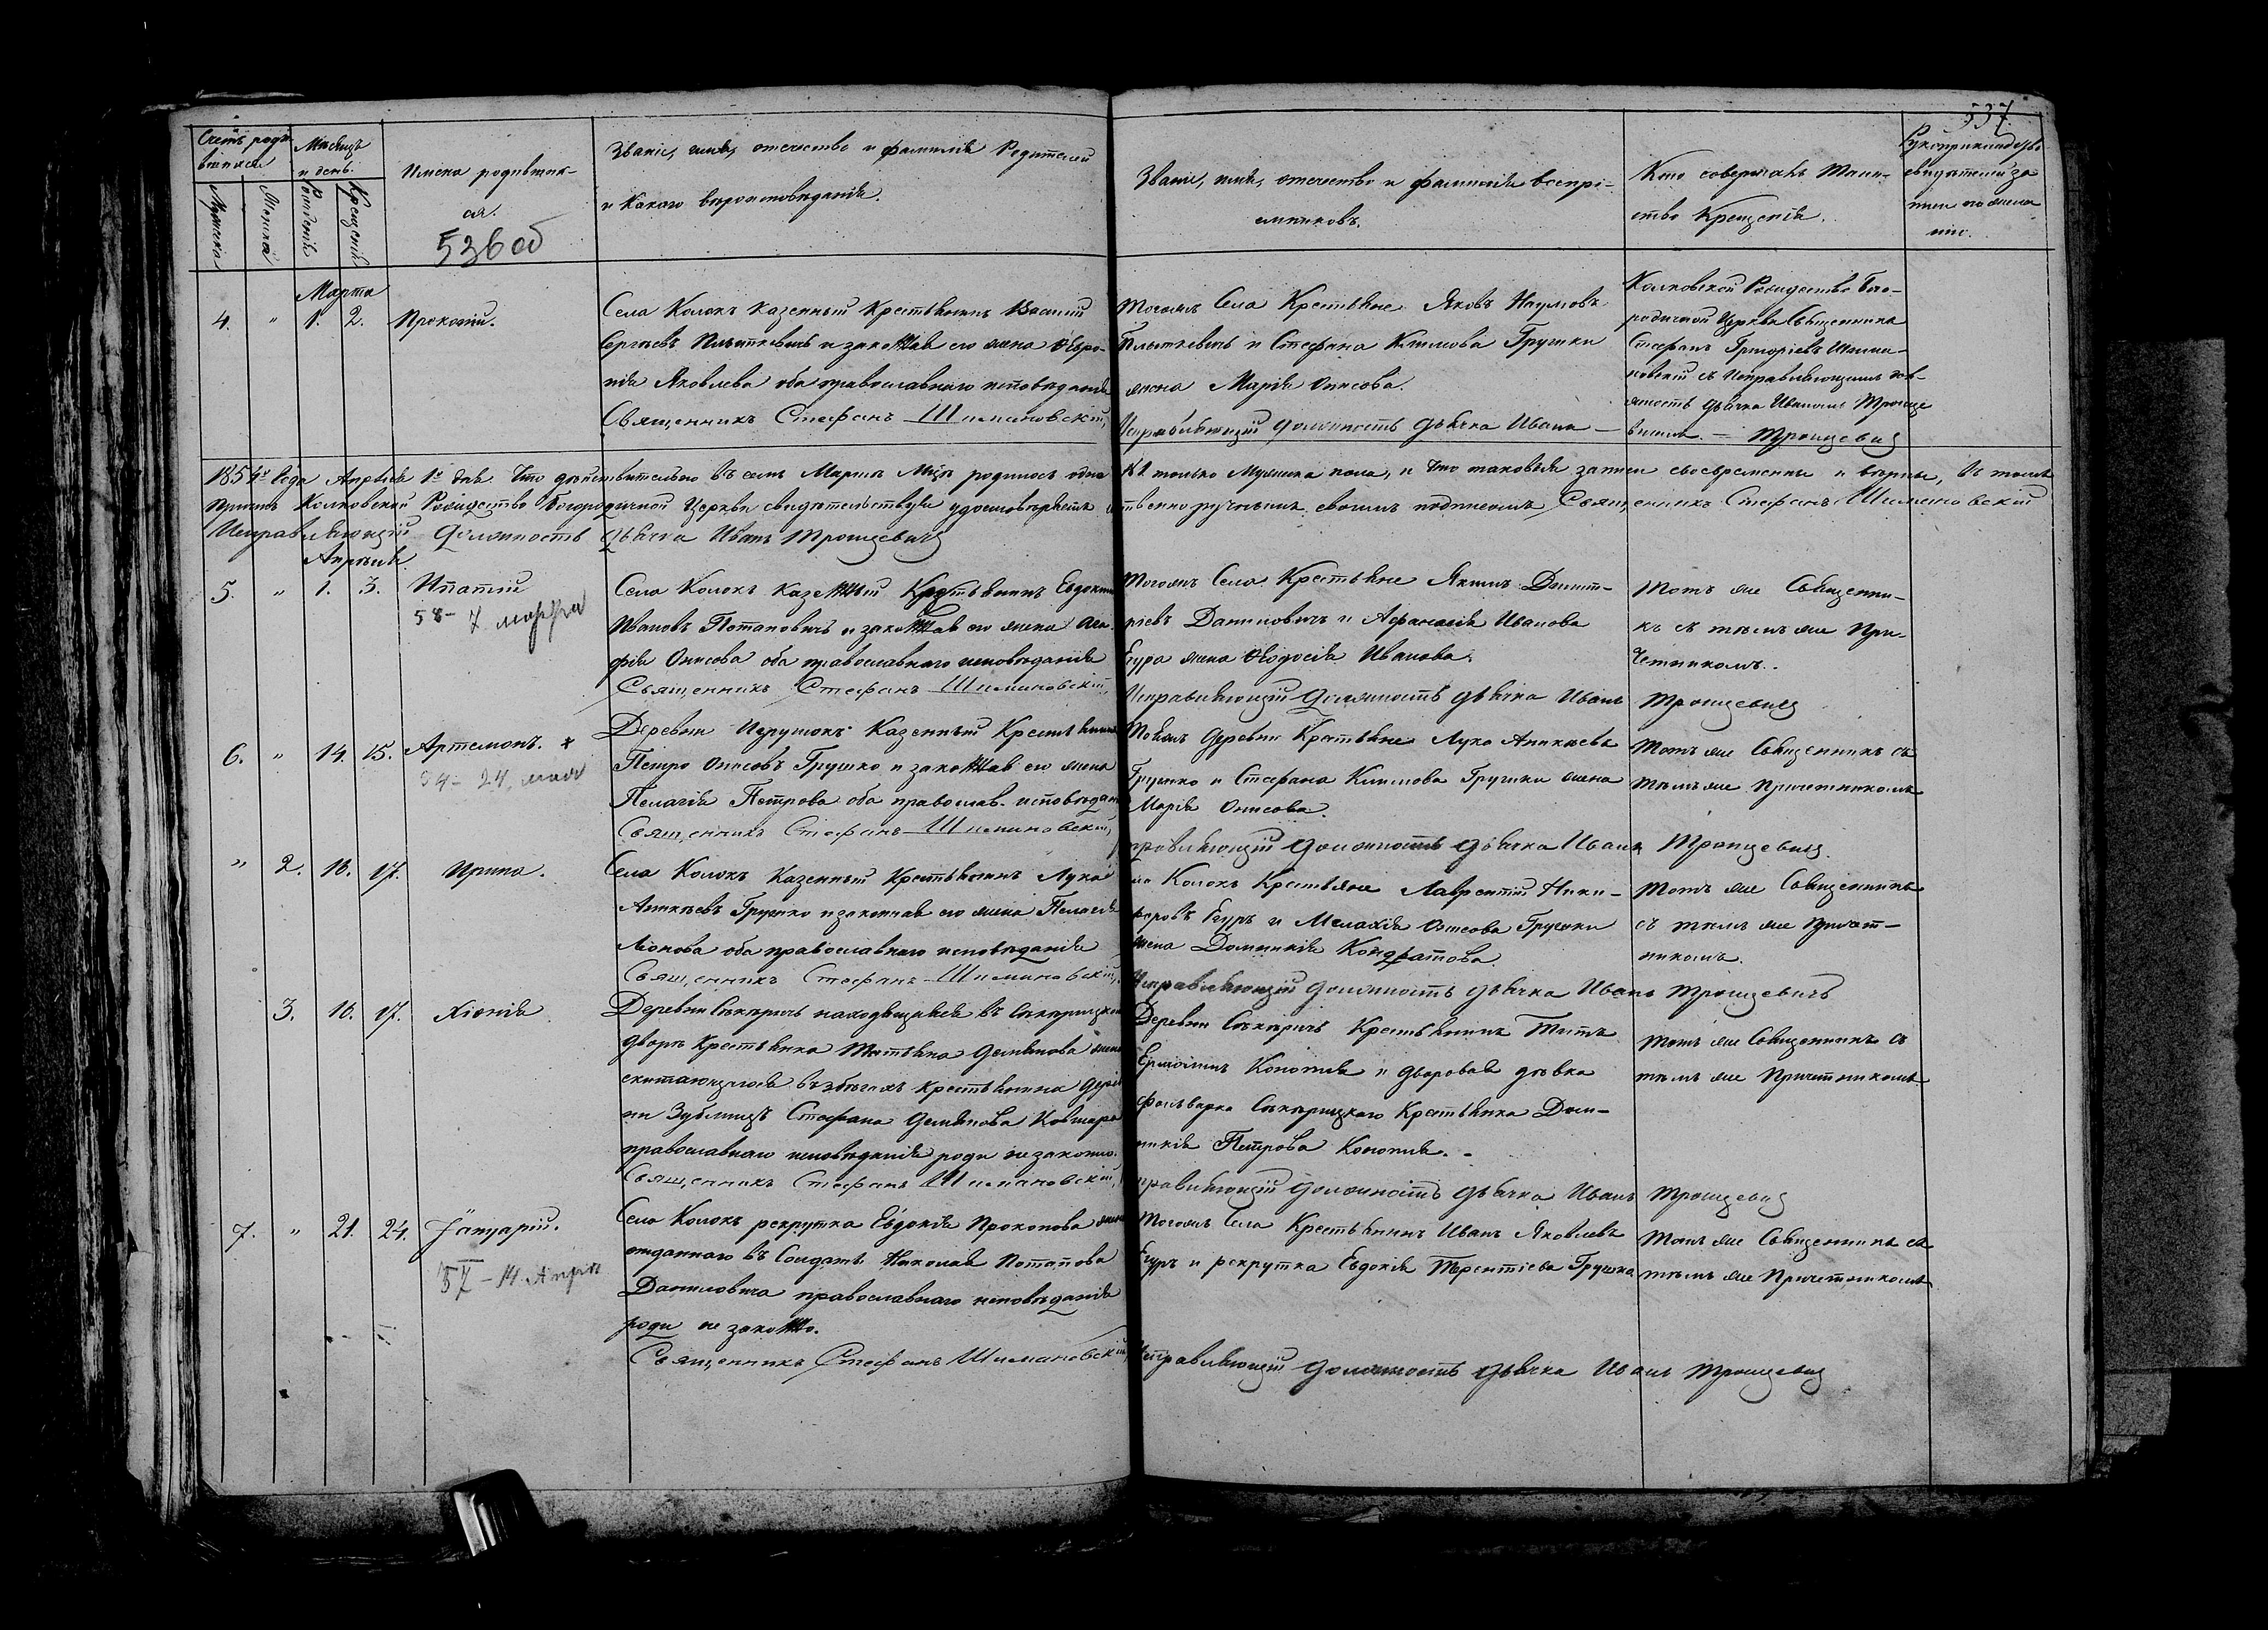 537
Счетъ родившихся
Мужеска
Женска
Мѣсяцъ и день.
Рожденія
Крещенія
Имена родивших-
ся.
536об
Званіе, имя, отечество и фамилія Родителей
и какого вѣроисповѣданія.
Званіе, имя, отечество и фамилія воспрі-
емниковъ.
Кто совершалъ Таин-
ство Крещенія.
Рукоприкладство
свидѣтелей за
писи по жела
нію.
Марта
4. " 1. 2. Прокопій.
Села Колокъ казенный Крестьянинъ Василій
Сергѣевъ и законная его жена Февро-
нія Яковлева оба православнаго исповѣданія
Священникъ Стефанъ Шимановскій,
Тогожъ Села Крестьяне Яковъ Наумовъ
и Стефана Климова Грушки
жена Марія Онисова.
Исправляющій должность дьячка Иванъ
Колковской Рождество Бого-
родичной Церкви Священника
Стефанъ Григоріевъ Шима-
новскій съ Исправляющимъ дол-
жность дьячка Иваномъ Троцε
вичемъ. — Троцевич
1854го Года Апрѣля 1го дня. Что дѣйствительно въ семъ Мартѣ Мцѣ родилось одно только Мужеска пола, и что таковыя записи своевременны и вѣрны, въ томъ
Причтъ Колковской Рождество Богородичной Церкви свидѣтельствуя удостовѣряетъ собственноручнымъ своимъ подписомъ, Священникъ Стефанъ Шимановский
Исправляющій Должность Дьячка Иванъ Троцевич
Апрѣля.
5. " 1. 3. Ипатій
58 - 7 марта
Села Колокъ казенный Крестьянинъ Евдокимъ
Ивановъ Потаповичъ и законная его жена Ага-
фія Онисова оба православнаго исповѣданія
Священникъ Стефанъ Шимановскій,
Тогожъ Села Крестьяне Якимъ Дмит-
ріевъ Даниловичъ и Афанасія Иванова
Егура жена Ѳеодосія Иванова.
Исправляющій Должность дьячка Иванъ Троцевич
Тотъ же Священни-
къ съ тѣмъ же При-
четникомъ.
6. " 14. 15. Артемонъ. x
54 - 24, мая
Деревни Казенный Крестьянинъ
Петро Онисовъ Грушко и законная его жена
Пелагія Петрова оба православ. исповѣдан
Священникъ Стефанъ Шимановский,
Тойжъ Деревни Крестьяне Лука Аникіевъ
Грушко и Стефана Климова Грушки жена
Марія Онисова.
правляющій Должность дьячка Иванъ Троцевич.
Тотъ же Священникъ съ
тѣмъ же Причетникомъ
" 2. 16. 17. Ирина.
Села Колокъ Казенный Крестьянинъ Лука
Аникіевъ Грушко и законная его жена Пелагія
Леонова оба православнаго исповѣданія
Священникъ Стефанъ Шимановскій,
ла Колокъ Крестьяне Лаврентій Ники-
форовъ Егуръ и Малахія Онисова Грушки
жена Домникія Кондратова.
Исправляющій Должность дьячка Иванъ Троцевичъ
Тотъ же Священникъ
съ тѣмъ же Причет-
никомъ.
3. 16. 17. Хіонія
Деревни находящаяся въ
дворѣ Крестьянка Татьяна Демьянова жена
скитающагося въ збѣгахъ Крестьянина Дерев
ни Стефана Демьянова
православнаго исповѣданія роди незаконно.
Священникъ Стефанъ Шимановскій,
Деревни Крестьянинъ Титъ
и дворовая дѣвка
фольварка Крестьянка Дом-
никія Петрова
правляющій Должность дьячка Иванъ Троцевич
Тотъ же Священникъ съ
тѣмъ же Причетникомъ
7. " 21. 24. Іануарій.
57 - 14 Апрѣ
Села Колокъ рекрутка Евдокія Прокопова жена
отданнаго въ Солдаты Николая Потапова
Даниловича православнаго исповѣданія
роди не законно.
Священникъ Стефанъ Шимановскій,
Тогожъ Села Крестьянинъ Иванъ Яковлевъ
Егуръ и рекрутка Евдокія Терентіева Грушка
Исправляющій Должность дьячка Иванъ Троцевич
Тотъ же Священникъ съ
тѣмъ же Причетникомъ